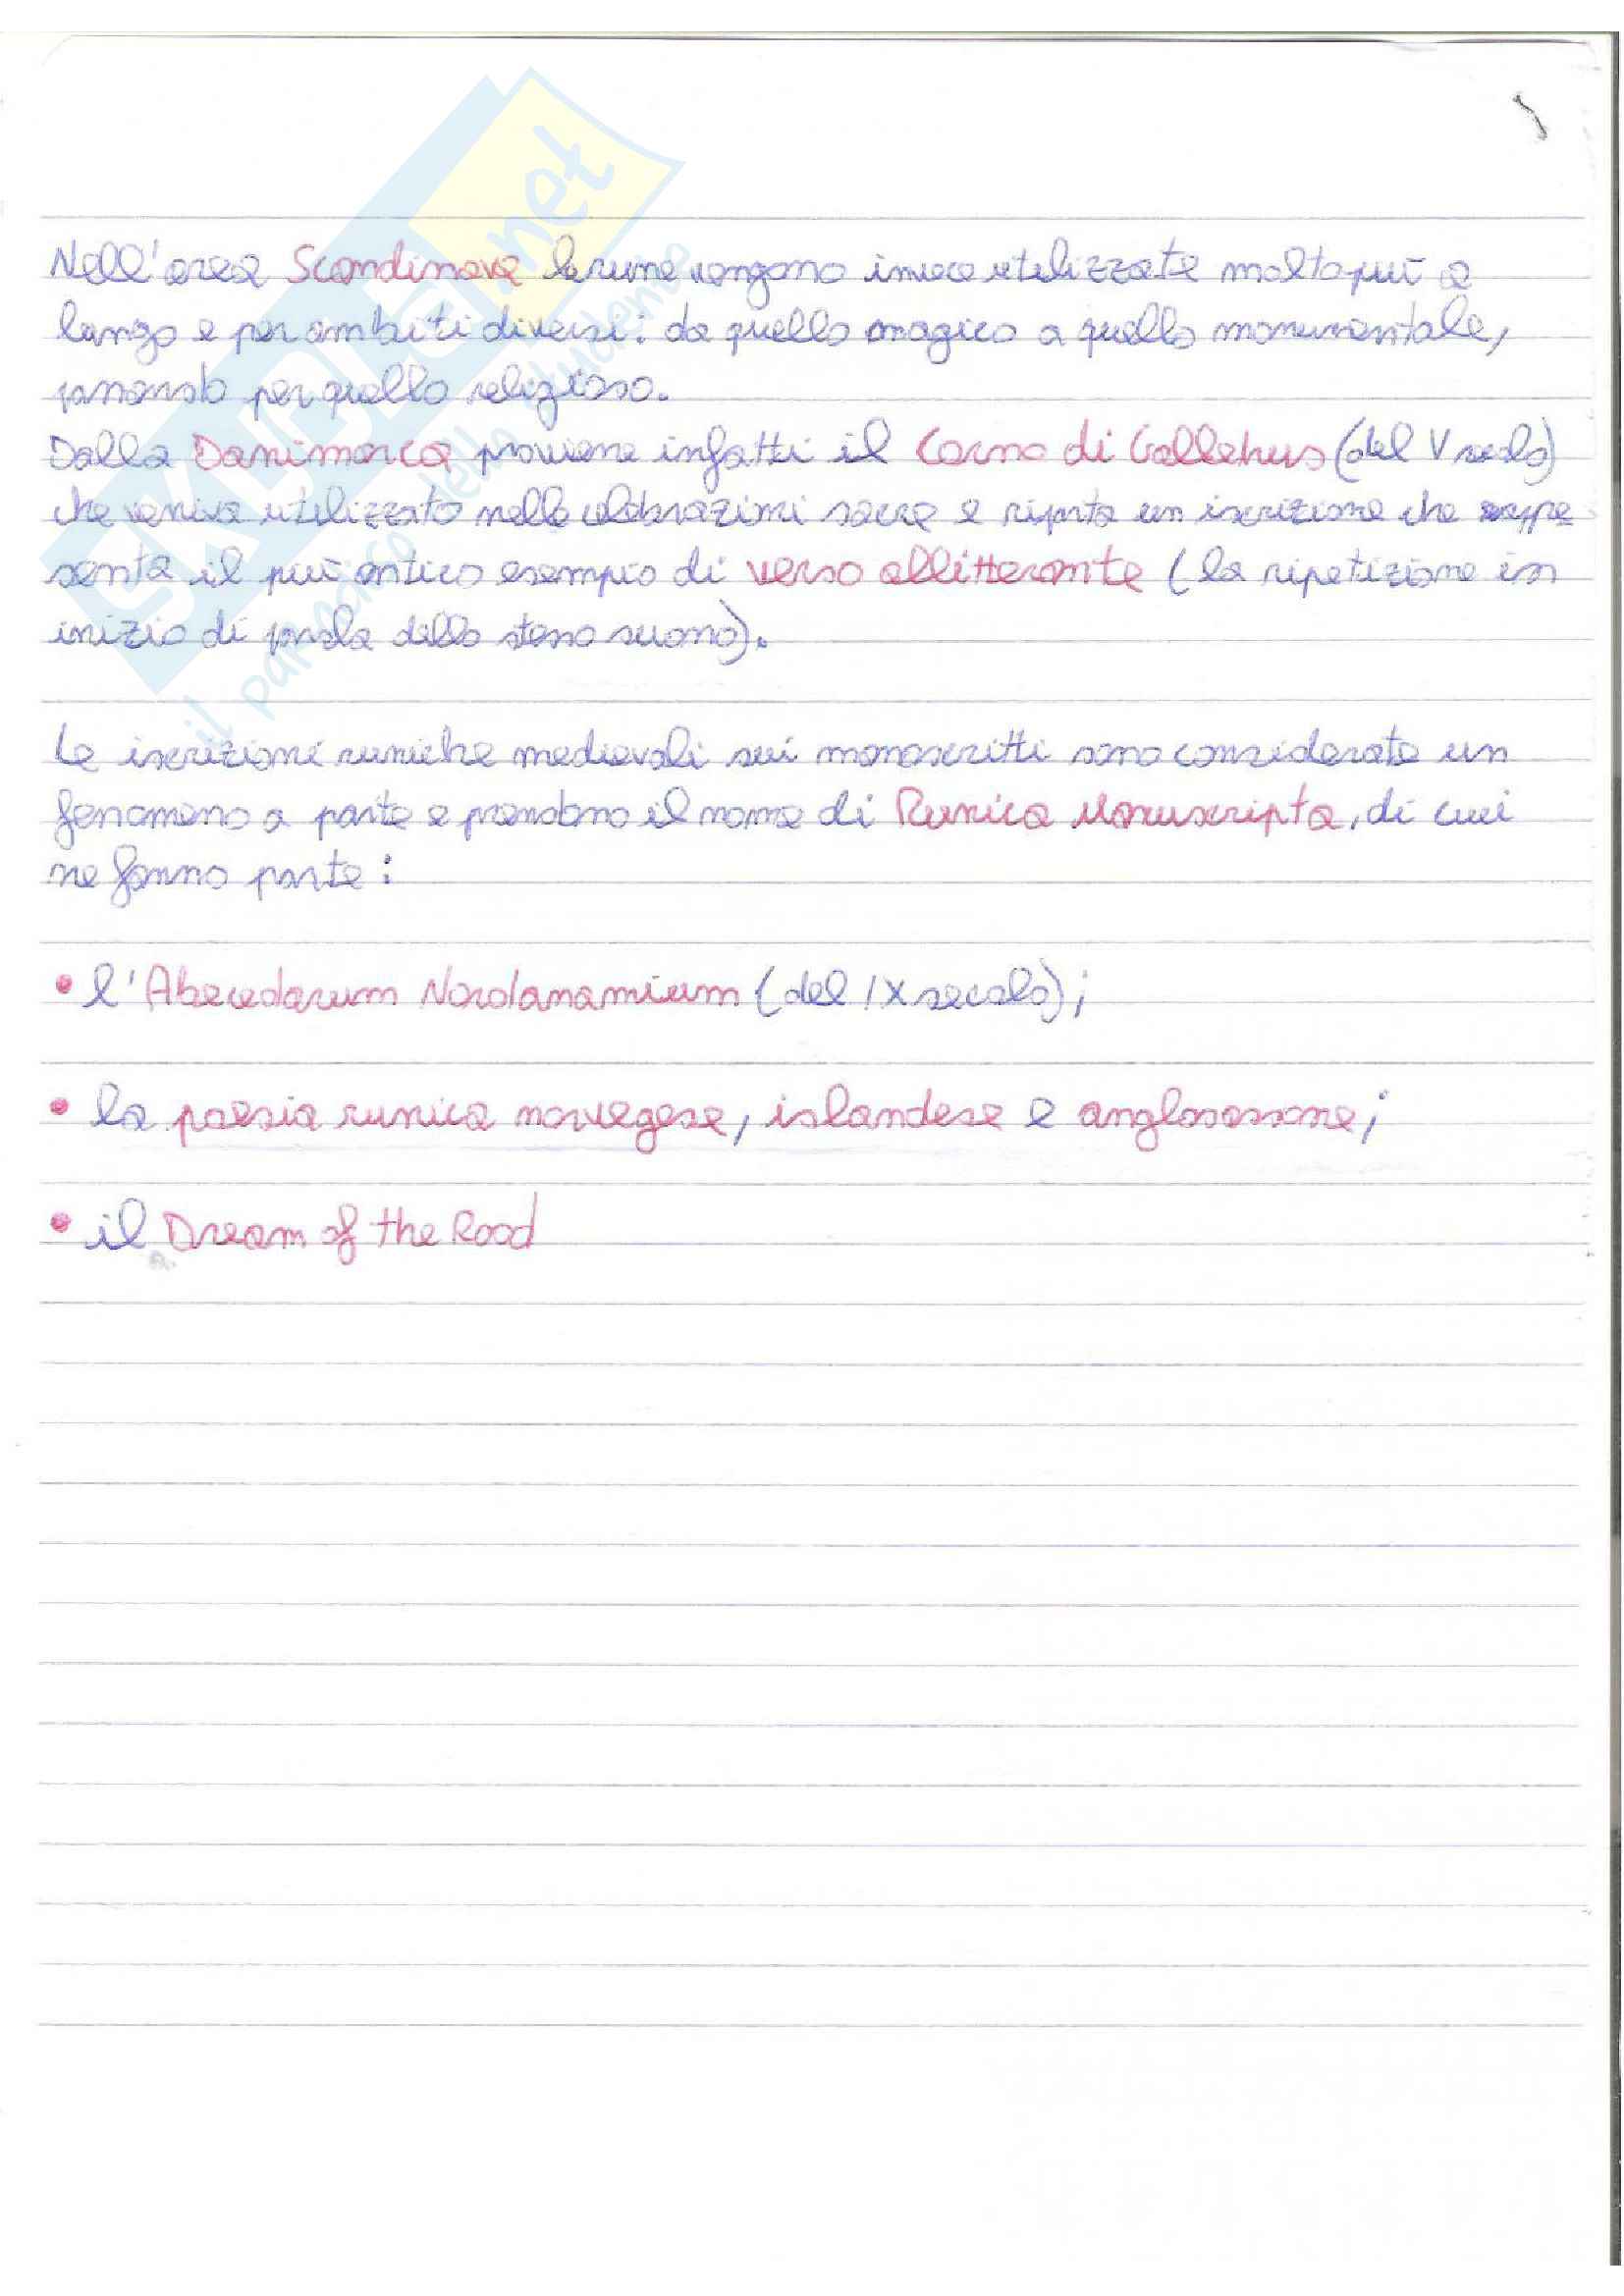 SKUOLA.net
il paradiso dello studente
Nell'area Scandinava le rune vengono invece utilizzate molto più a
lungo e per ambiti diversi: da quello magico a quello monumentale,
passando per quello religioso.
Dalla Danimarca proviene infatti il Corno di Gallehus (del V secolo)
che veniva utilizzato nelle celebrazioni sacre e riporta un iscrizione che rappre
senta il più antico esempio di verso allitterante (la ripetizione in
inizio di parola dello stesso suono).
Le iscrizioni runiche medievali sui manoscritti sono considerate un
fenomeno a parte e prendono il nome di Runica Manuscripta, di cui
ne fanno parte:
• l'Abecedarum Nordanamium (del IX secolo);
• la poesia runica norvegese, islandese e anglosassone;
• il Dream of the Rood